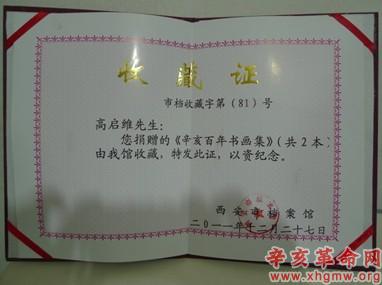 收藏证
市档收藏字第(81)号
高启维先生:
您捐赠的《辛亥百年书画集》(共2本)
由我馆收藏,特发此证,以资纪念。
西安市档案馆
二〇一一年二月二十七日
辛亥革命网
www.xhgmw.org